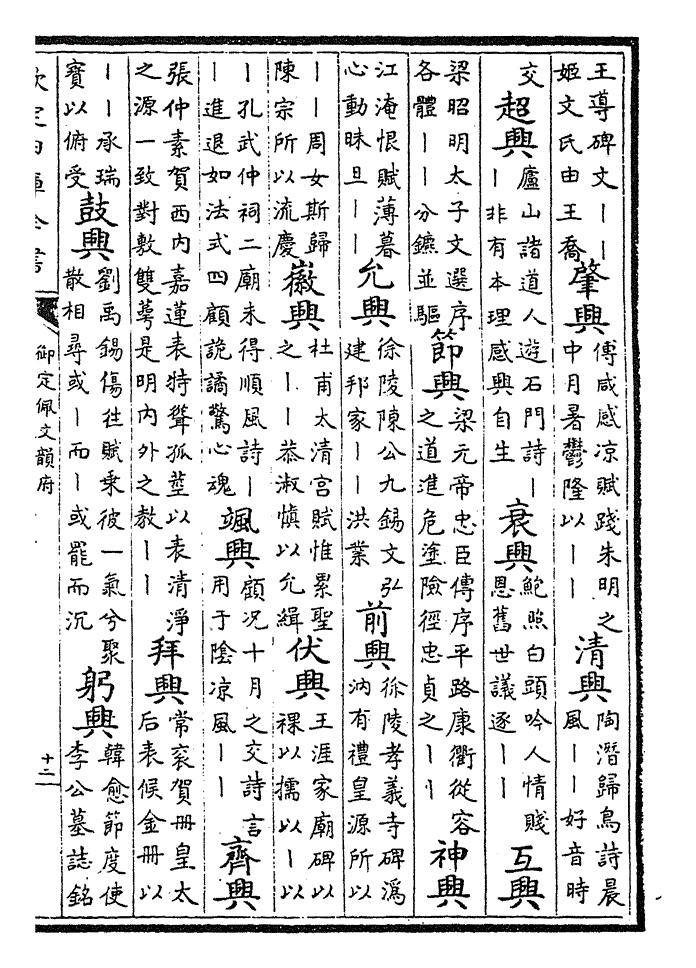 王導碑文｜｜
姬文氏由王喬
肇興
傅咸感凉賦踐朱明之
中月暑鬱隆以｜｜
清興
陶潛歸鳥詩晨
風｜｜好音時
交
超興
廬山諸道人遊石門詩｜
｜非有本理感興自生
衰興
鮑照白頭吟人情賤
恩舊世議逐｜｜
互興
梁昭明太子文選序
各體｜｜分鑣並驅
節興
梁元帝忠臣傳序平路康衢從容
之道進危塗險徑忠貞之｜｜
神興
江淹恨賦薄暮
心動昧旦｜｜
允興
徐陵陳公九錫文弘
建邦家｜｜洪業
前興
徐陵孝義寺碑溈
汭有禮皇源所以
｜｜周女斯歸
陳宗所以流慶
嶶興
杜甫太清宮賦惟累聖
之｜｜恭淑慎以允緝
伏興
王涯家廟碑以
祼以擩以｜以
｜孔武仲祠二廟未得順風詩｜
｜進退如法式四顧詭譎驚心魂
颯興
顧况十月之交詩言
用于陰凉風｜｜
齊興
張仲素賀西內嘉蓮表特聳孤莖以表清淨
之源一致對敷雙蕚是明內外之教｜｜
拜興
常衮賀冊皇太
后表候金冊以
｜｜承瑞
寶以俯受
鼓興
劉禹錫傷往賦乘彼一氣兮聚
散相尋或｜而｜或罷而沉
躬興
韓愈節度使
李公墓誌銘
欽定四庫全書
御定佩文韻府
十二